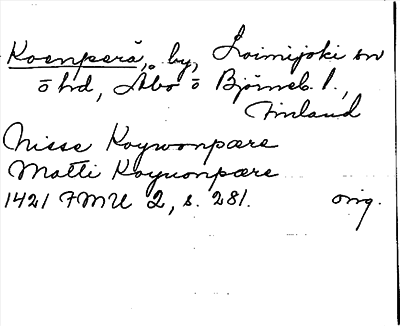 Koenperä, by, Loimijoki sn
o hd, Åbo o Björneb. l.,
Finland
Nisse Koywonpære
Matti Koyuonpære
1421 FMU 2, s. 281. orig.